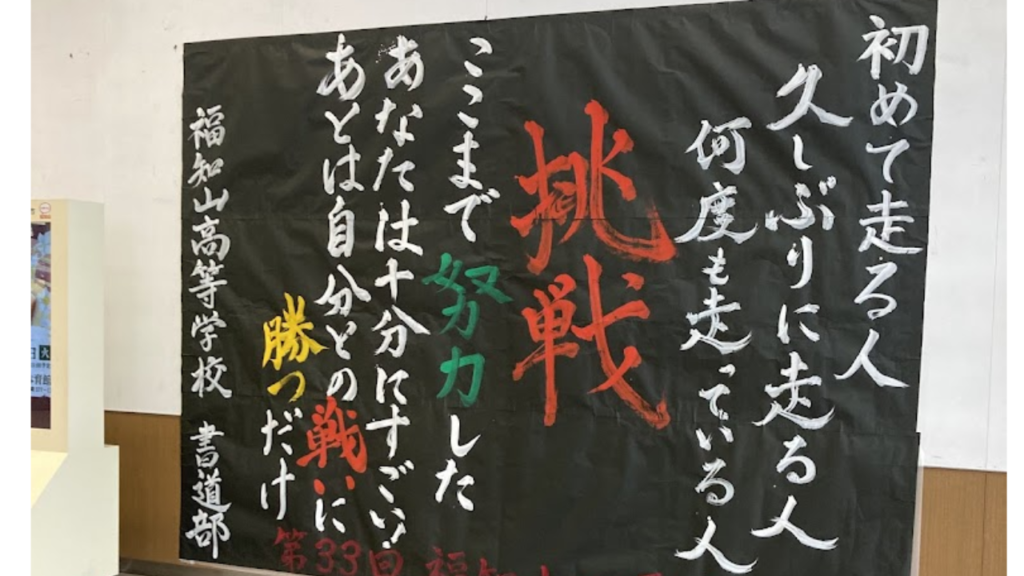 初めて走る人
久しぶりに走る人
何度も走っている人
挑戦
ここまで努力した
あなたは十分にすごい!
あとは自分との戦いに
勝つだけ
福知山高等学校 書道部
第33回 福知山